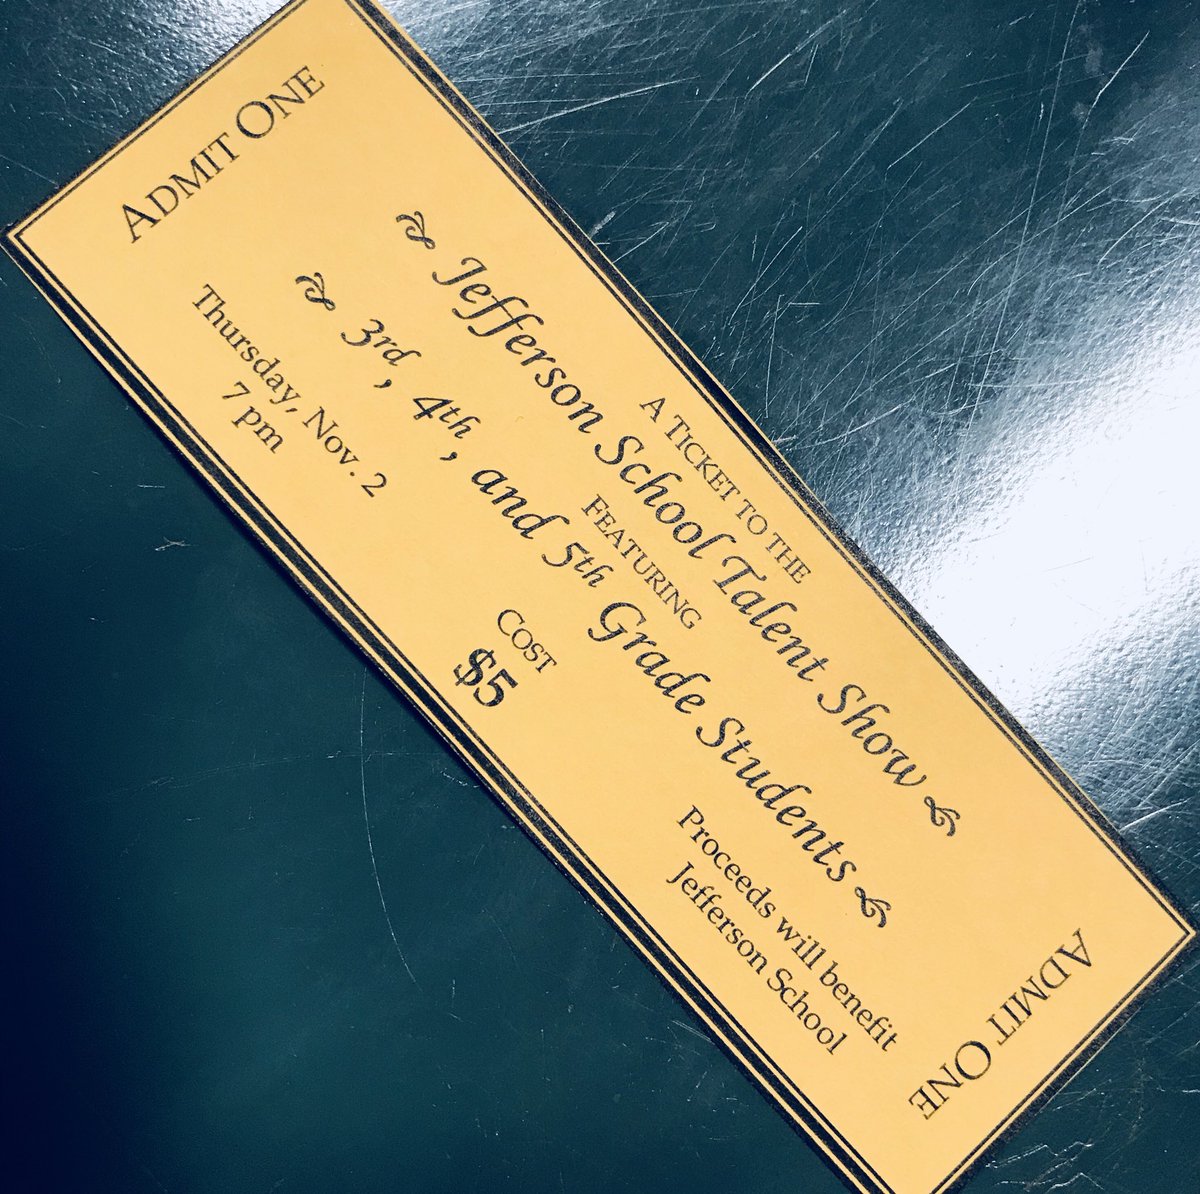 ADMIT ONE
A TICKET TO THE
Jefferson School Talent Show
FEATURING
3rd, 4th, and 5th Grade Students
Thursday, Nov. 2
7 pm
COST
$5
Proceeds will benefit
Jefferson School
ADMIT ONE